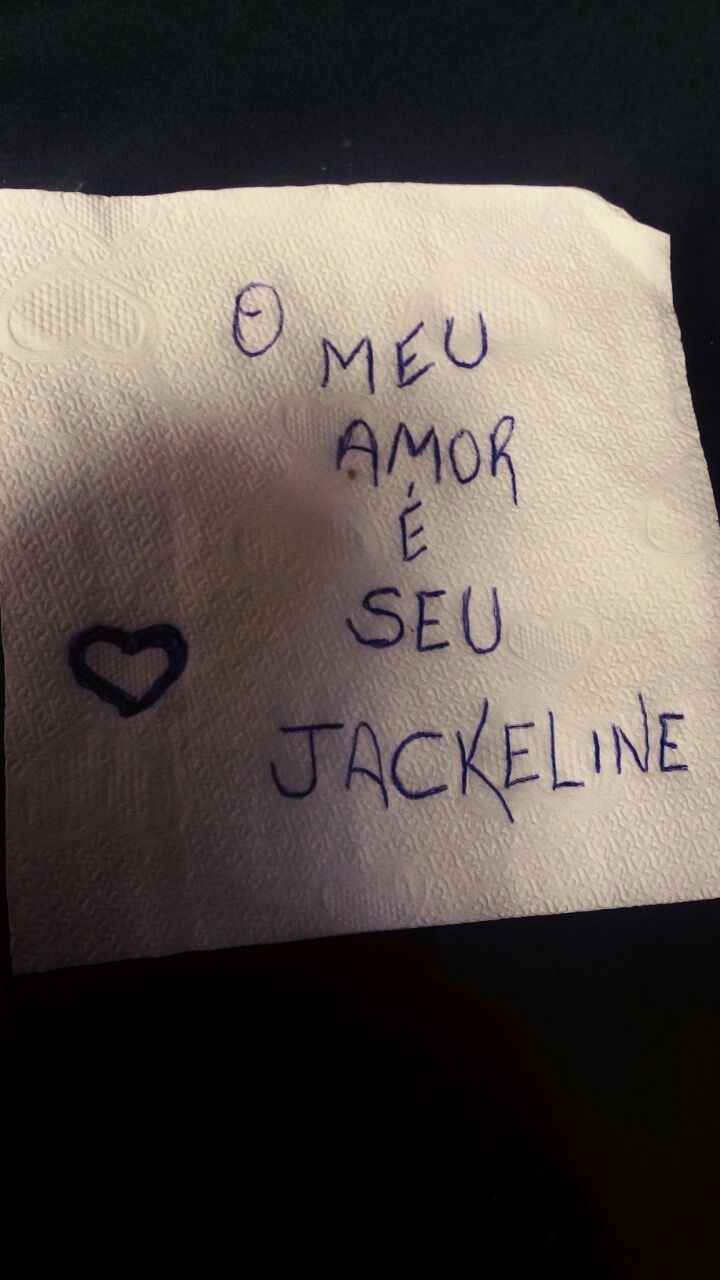 O MEU
AMOR
É
SEU
JACKELINE